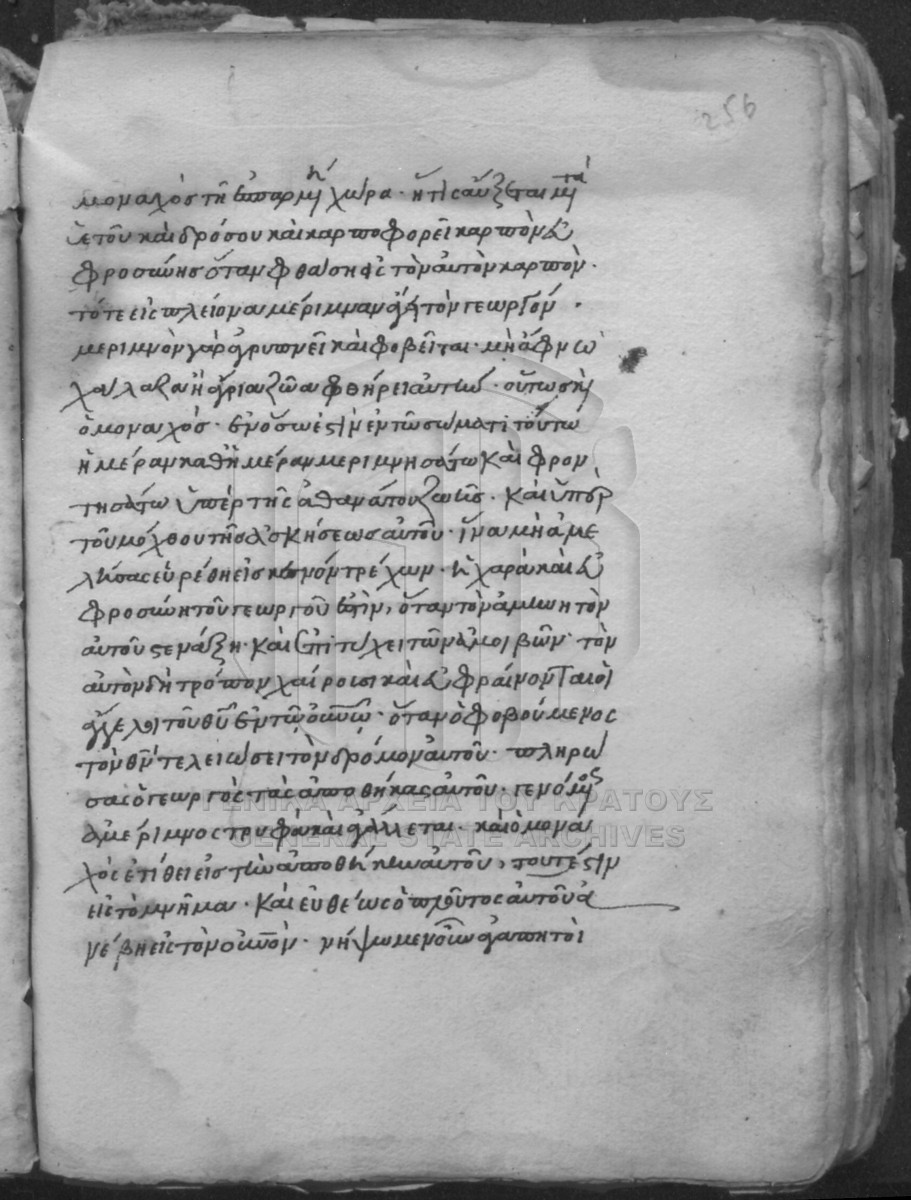 256
μοναχὸς τῆ ἐσπαρμένη χώρα· ἥτις αὔξεται μετὰ
ὑετοῦ καὶ δρόσου καὶ καρποφορεῖ καρπὸν εὐ
φροσύνης ὅταν φθάση εἰς τὸν αὐτὸν καρπὸν·
τότε εἰς πλείονα μέριμναν ἄγει τὸν γεωργόν·
μεριμνὸν γὰρ ἀγρυπνεῖ καὶ φοβεῖται· μὴ ἄφνω
χάλαζα ἢ ἄγρια ζῶα φθήρει αὐτήν· οὕτως καὶ
ὁ μοναχός· ἐν ὅσω ἐστὶν ἐν τῶ σώματι τούτω
ἡμέραν καθ' ἡμέραν μεριμνησάτω καὶ φρον
τησάτω ὑπὲρ τῆς ἀθανάτου ζωῆς· καὶ ὑπὲρ
τοῦ μόχθου τῆς ἀσκήσεως αὐτοῦ· ἵνα μὴ ἀμε
λήσας εὑρέθη εἰς κενὸν τρέχων· ἡ χαρὰ καὶ εὐ
φροσύνη τοῦ γεωργοῦ ἐστὶν, ὅταν τὸν ἀμητὸν
αὐτοῦ συνάξη· καὶ ἐπιτύχει τῶν ἀμοιβῶν· τὸν
αὐτὸν δὴ τρόπον χαίρουσι καὶ εὐφραίνονται οἱ
ἄγγελοι τοῦ θυ ἐν τῶ ουνω· ὅταν ὁ φοβούμενος
τὸν θν τελειώσει τὸν δρόμον αὐτοῦ· πληρώ
σας ὁ γεωργὸς τὰς ἀποθήκας αὐτοῦ· γενόμενος
ἀμέριμνος τρυφᾶ καὶ ἀγάλλεται· καὶ ὁ μονα
χὸς ἐτίθει εἰς τὴν ἀποθήκην αὐτοῦ, τουτέστιν
εἰς τὸ μνῆμα· καὶ εὐθέως ὁ πλοῦτος αὐτοῦ ἀ
νέβη εἰς τὸν ουνον· νήψωμεν οὖν ἀγαπητοὶ
ΓΕΝΙΚΑ ΑΡΧΕΙΑ ΤΟΥ ΚΡΑΤΟΥΣ
GENERAL STATE ARCHIVES